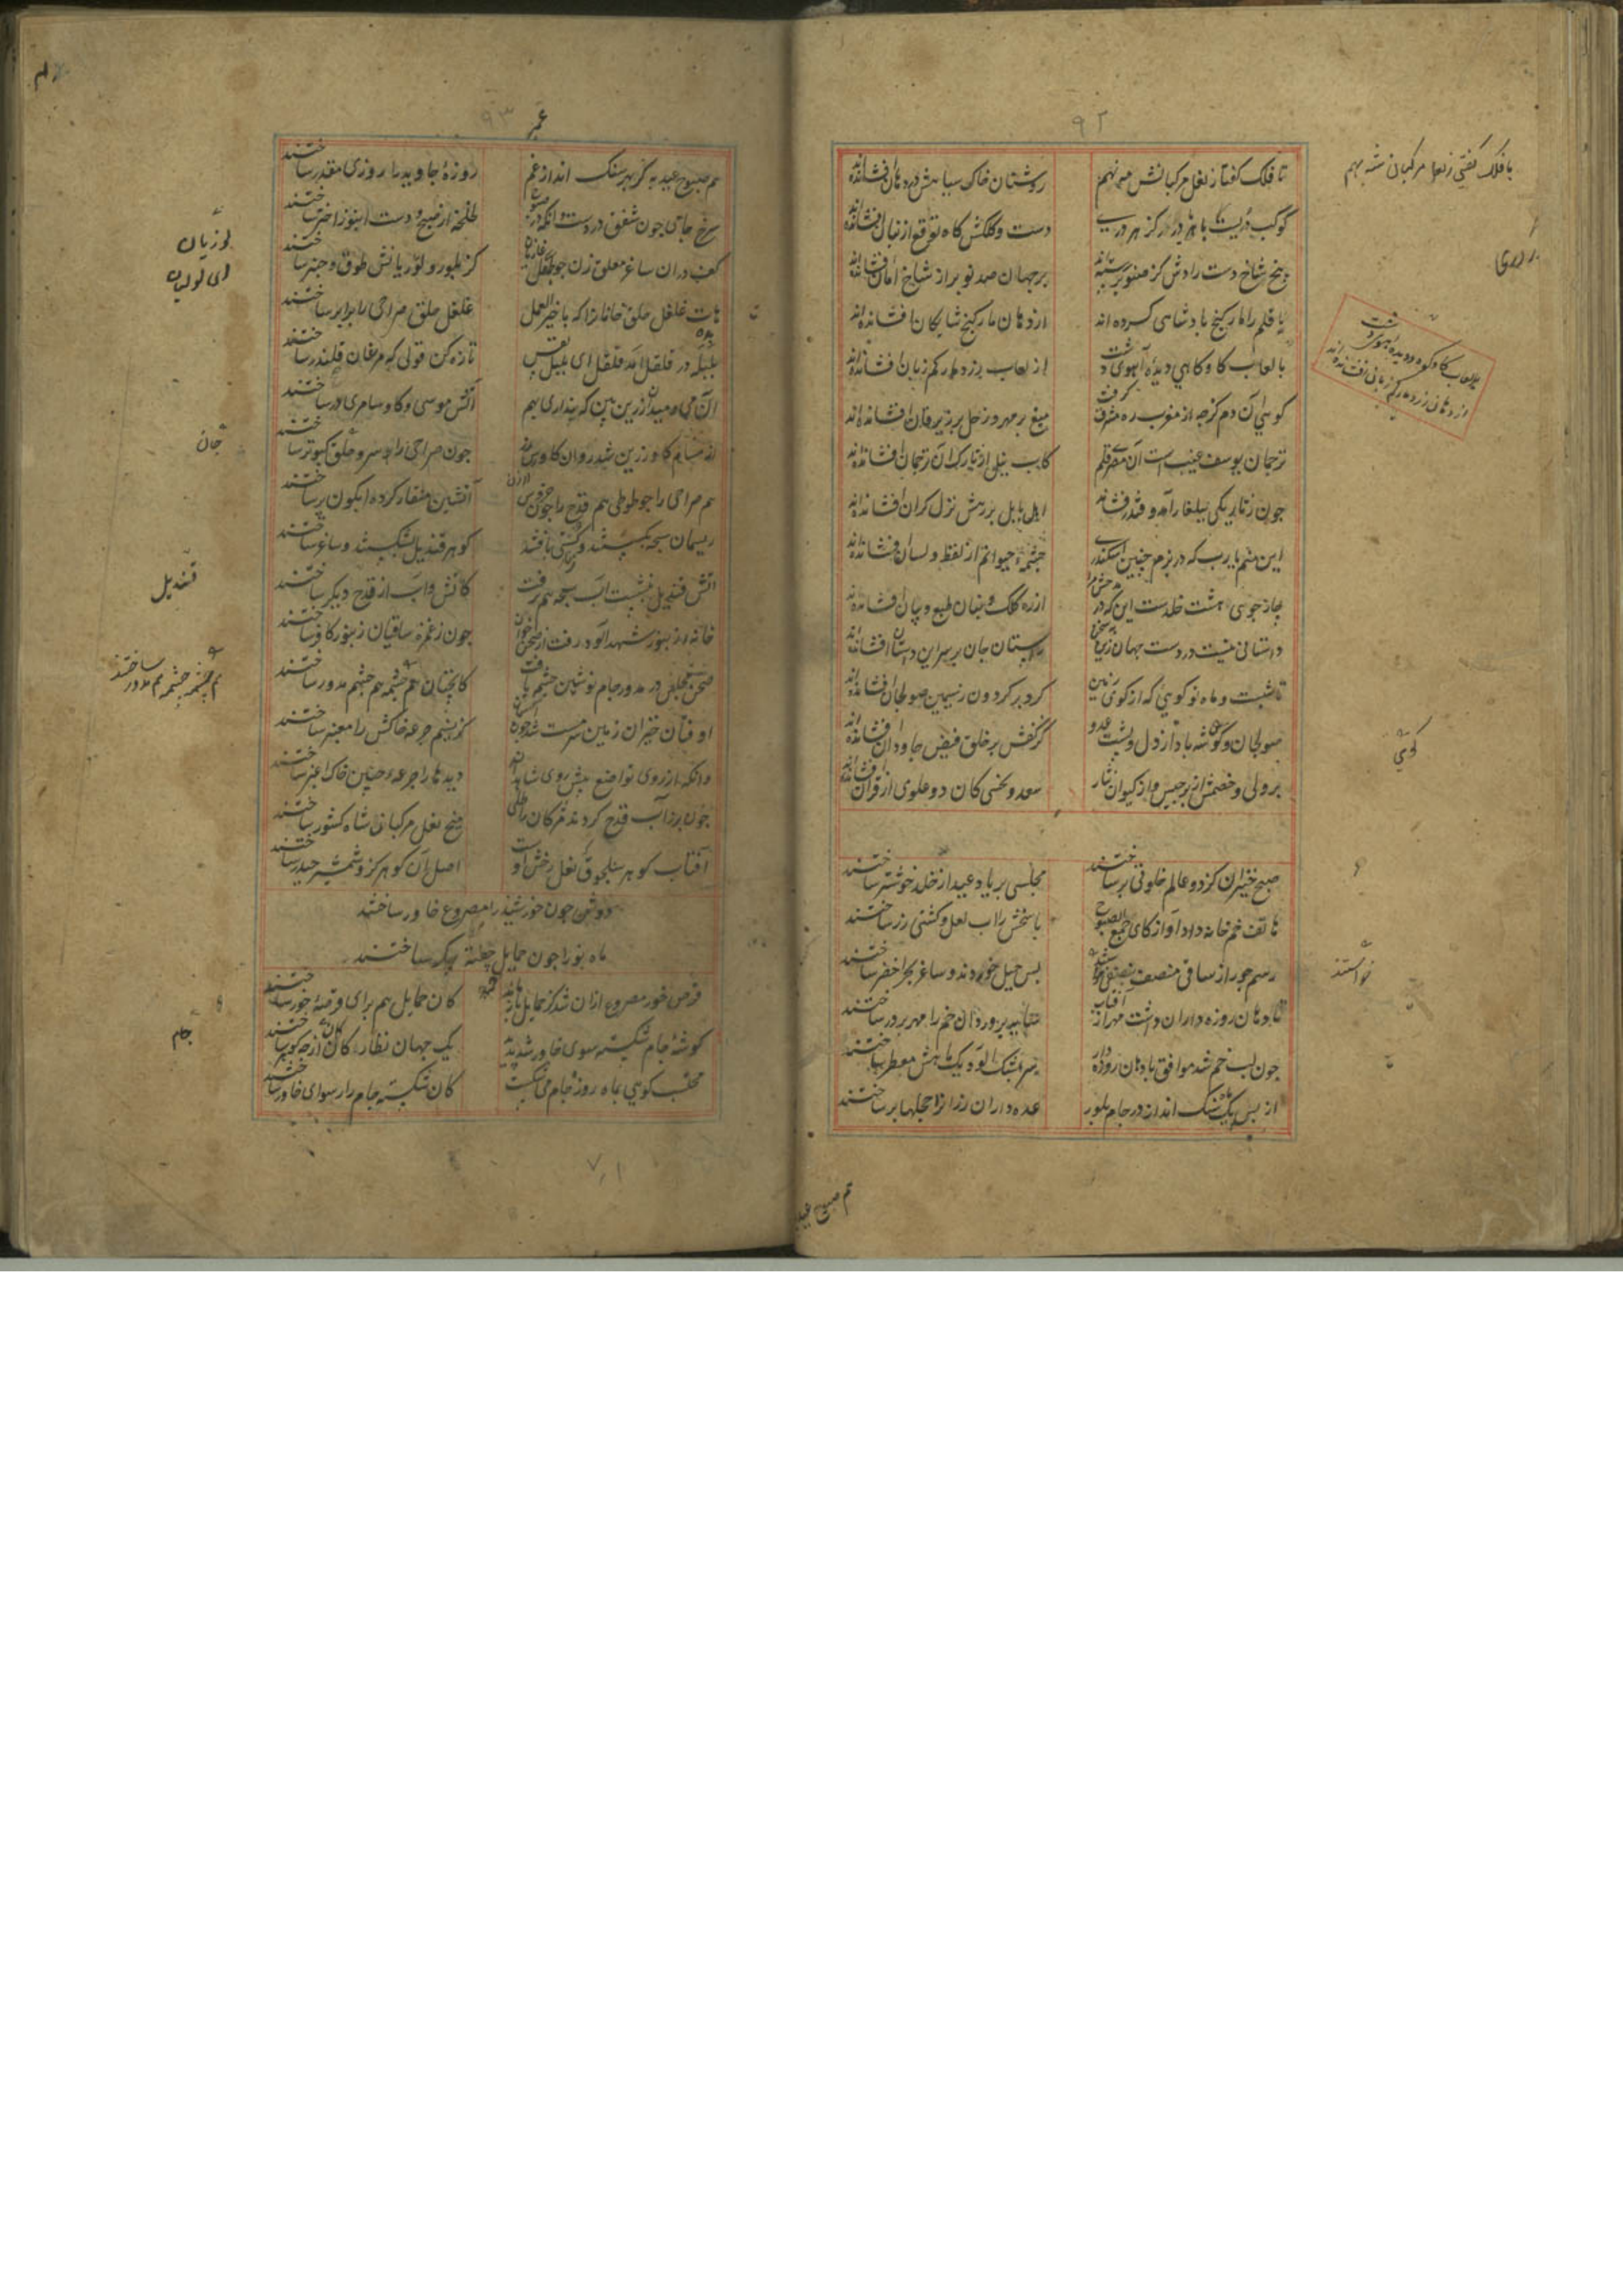 ۹۲
با فلک گفتی ز نعل مرکبانش شه بهم
تا فلک گفتا ز نعل مرکبانش می نهم
روشنان خاک سیاهش در دهان افشانده اند
دست و کلکش گاه توقیع از بنان افشانده اند
پنج شاخ دست رادش کز صنوبر رسته اند
بر جهان صد نوبر از شاخ امان افشانده اند
یا قلم را مار گنج پادشاهی کرده اند
از دهان مار گنج شایگان افشانده اند
با لعاب گاو کاهی دیده آهوی دشت
از لعاب زرد مار کم زبان افشانده اند
گوئی آن دم کز جه از مغرب ره مشرق گرفت
میغ بر مهر و زحل بر زبرقان افشانده اند
ترجمان یوسف غیب است آن مصری قلم
کآب نیل از تارک آن ترجمان افشانده اند
چون ز تاریکی ببلغار آمد و قندز فشاند
اهل بابل بر رهش نزل گران افشانده اند
این منم یارب که در بزم چنین اسکندری
چشمه حیوانم از لفظ و لسان افشانده اند
چار جوی هشت خلد است این که در مدحش مرا
از ره کلک و بنان طبع و بیان افشانده اند
داستانی نیست در دست جهان زین به سخن
راستان جان بر سر این داستان افشانده اند
تا شبست و ماه نو گوئی که از گوی زمین
گرد بر گردون ز سیمین صولجان افشانده اند
صولجان و گوی شه باد از دل و پشت عدو
کز کفش بر خلق فیض جاودان افشانده اند
بر ولی و خصمش از برجیس و از کیوان نثار
سعد و نحسی کان دو علوی از قران افشانده اند
صبح خیزان کز دو عالم خلوتی بر ساختند
مجلسی بر یاد عید از خلد خوشتر ساختند
هاتف خمخانه داد آواز کای جمع الصبوح
پاسخش را آب لعل و کشتی زر ساختند
رسم جور از ساقی منصف بنصفی خواستند
بس حیل خوردند و ساغر بحر اخضر ساختند
تا دهان روزه داران داشت مهر از آفتاب
سایه پروردان خم را مهر بر در ساختند
چون لب خم شد موافق با دهان روزه دار
سر بمشک آلوده یک ماهش معطر ساختند
از پس یک ماه سنگ انداز در جام بلور
عده داران رزان را حجلها بر ساختند
هم صبوح عید
۹۳
هم صبوح عید به کز بهر سنگ انداز غم
روزه جاوید را روزی مقدر ساختند
سرخ جامی چون شفق در دست وانگه در صبوح
کف در آن ساغر معلق زن چو طفل غازیان
کز بلور و لوریانش طوق و چنبر ساختند
هات غلغل حلق خامان را که با خیر العمل
غلغل حلق صراحی را برابر ساختند
بلبله در قلقل آمد قلقل ای بلبل نفس
تازه کن قولی که مرغان قلندر ساختند
آن می و میدان زرین بین که پنداری بهم
آتش موسی و گاو سامری در ساختند
چون صراحی را سر و حلق کبوتر ساختند
هم صراحی را چو طوطی هم قدح را چون خروس
آتشین منقار کرده آبگون پر ساختند
ریسمان سبحه بگسستند و کستی بافتند
گوهر قندیل بشکستند و ساغر ساختند
آتش قندیل بنشست آب سبحه هم برفت
کآتش و آب از قدح دیگر ساختند
خانه زنبور شهد آلود رفت از صحن خوان
چون ز غمزه ساقیان زنبور کافر ساختند
صحن مجلس در مدور جام نوشین چشمه یافت
او فتان خیزان زمین سرمست شد چون آسمان
کز نسیم جرعه خاکش را معنبر ساختند
وانگه از روی تواضع پیش روی شاهدان
دیدها را جرعه چین خاک اغبر ساختند
آفتاب گوهر سلجوق نعل رخش اوست
اصل آن گوهر کزو شمشیر حیدر ساختند
دوش چون خورشید را مصروع خاور ساختند
ماه نو را چون حمایل چفته پیکر ساختند
قرص خور مصروع از آن شد کز حمایل باز ماند
کان حمایل هم برای قرصه خور ساختند
گوشه جام شکسته سوی خاور شد پدید
یک جهان نظاره کان جام از چه گوهر ساختند
محتسب گوئی بماه روزه جام می شکست
کان شکسته جام را رسوای خاور ساختند
قندیل
جان
جام
خواستند